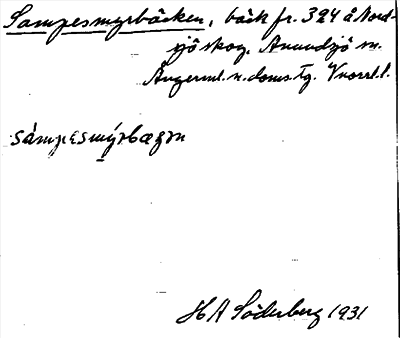 Sampesmyrbäcken, bäck fr. 324 å Nord-
sjö skog, Anundsjö sn.
Ångerml. n. doms. tg. Vnorrl. l.
sámpesmýrbæʒɛn
H A Söderberg 1931